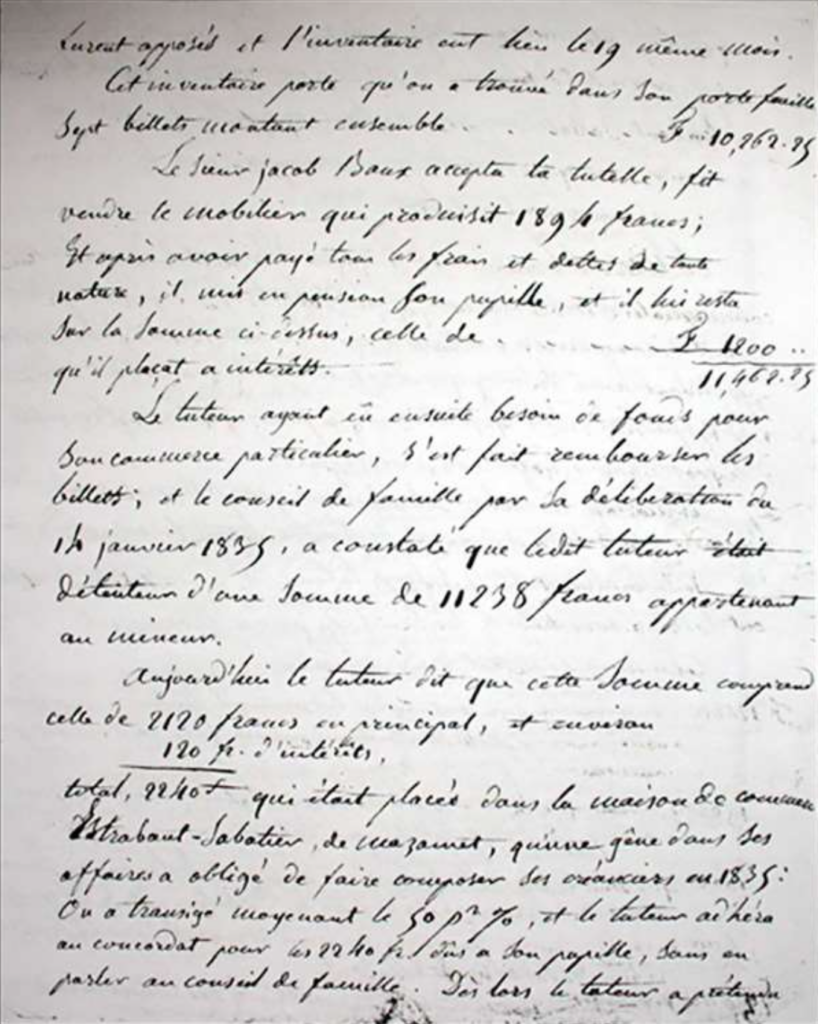 furent apposés et l'inventaire eut lieu le 19 même mois.
Cet inventaire porte qu'on a trouvé dans son porte feuille
Sept billets montant ensemble. F 10,262.25
Le sieur jacob Baux accepta la tutelle, fit
vendre le mobilier qui produisit 1894 francs;
Et après avoir payé tous les frais et dettes de toute
nature, il mis en pension son pupille, et il lui resta
Sur la somme ci-dessus, celle de F 1200 ..
qu'il plaçat a intérêts. 11,462.25
Le tuteur ayant eu ensuite besoin de fonds pour
Son commerce particulier, s'est fait rembourser les
billets; et le conseil de famille par sa déliberation du
14 janvier 1835, a constaté que ledit tuteur était
détenteur d'une somme de 11238 francs appartenant
au mineur.
Aujourd'hui le tuteur dit que cette somme comprend
celle de 2120 francs en principal, et environ
120 fr. d'intérêts,
total, 2240 f qui était placés dans la maison de commerce
Estrabaut-Sabatier, de mazamet, qu'une gêne dans ses
affaires a obligé de faire composer ses créanciers en 1835:
On a transigé moyenant le 50 pr %, et le tuteur adhéra
au concordat pour les 2240 fr. dûs a son pupille, sans en
parler au conseil de famille. Dès lors le tuteur a prétendu